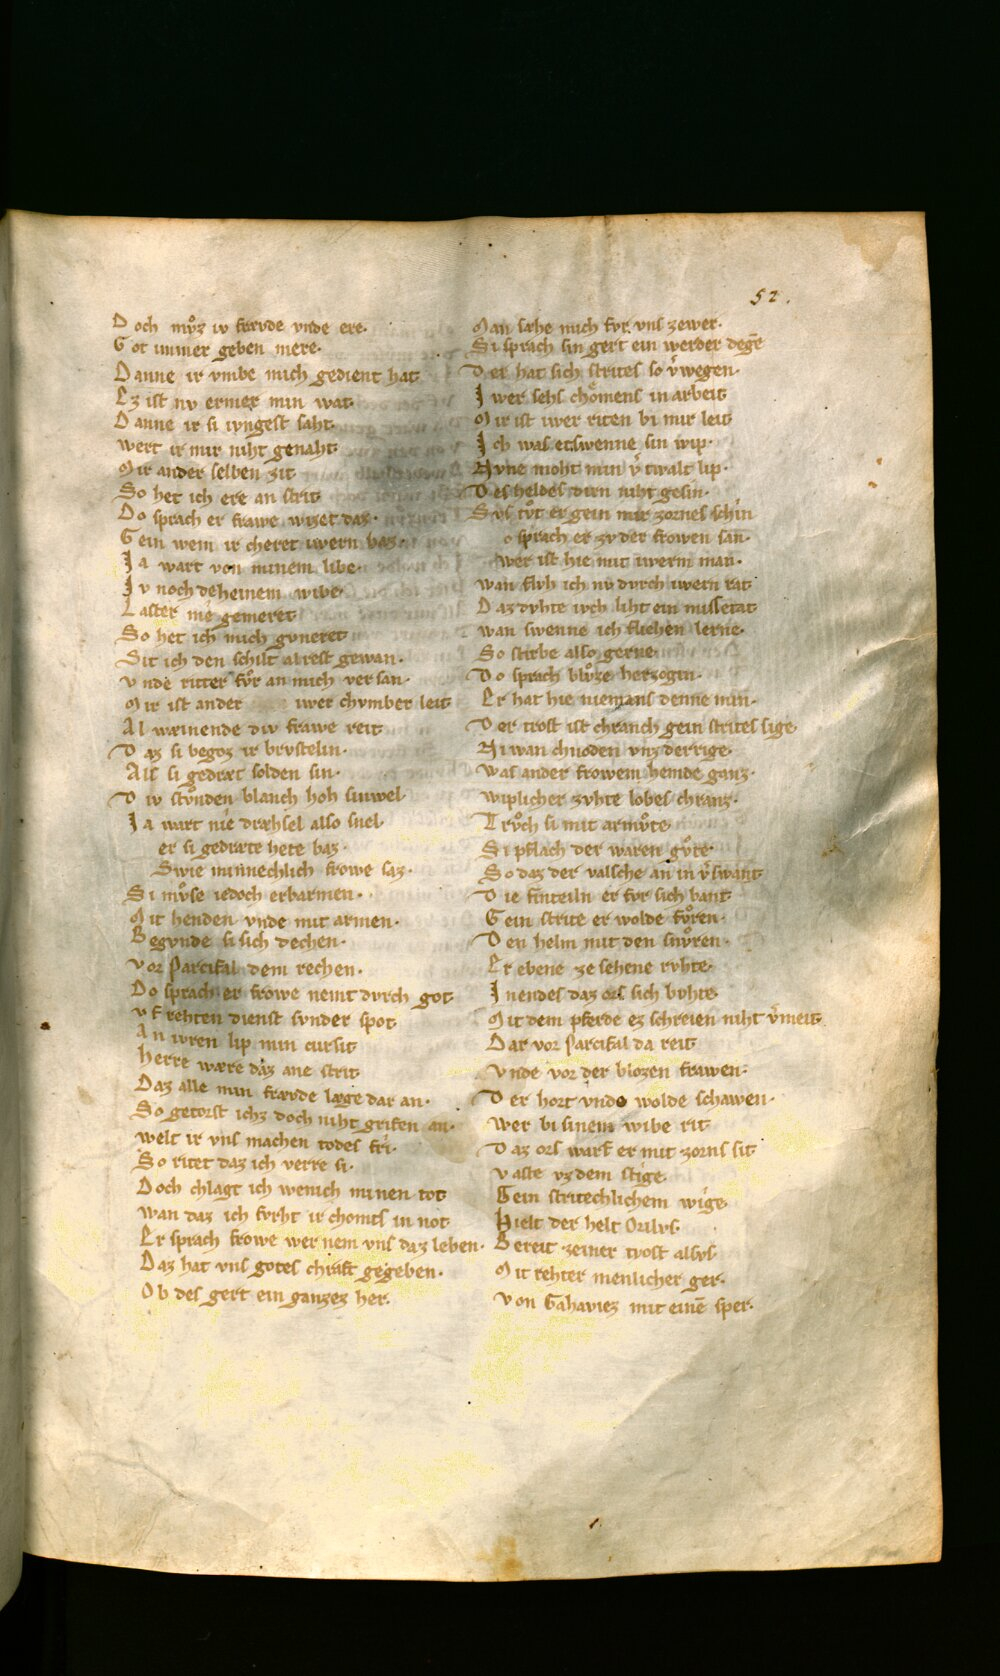 52.
Doch mvͦz iv frævde vnde ere·
Got immer geben mere·
Danne ir vmbe mich gedient hat
Ez ist nv ermer min wat
Danne ir si ivngest saht
wert ir mir niht genaht
Mir ander selben zit
So het ich ere an strit
Do sprach er frawe wizet daz·
Gein wem ir cheret iwern haz·
Ja wart von minem libe·
Iv noch deheinem wibe
Laster nie gemeret
So het ich mich gvneret
Sit ich den schilt alrest gewan·
vnde ritter fvͦr an mich versan·
Mir ist ander iwer chvmber leit
Al weinende div frawe reit
Daz si begoz ir brvstelin·
Als si gedræt solden sin·
Div stvͦnden blanch hoh sinwel
Ja wart nie dræhsel also snel
er si gedræte hete baz·
Swie minnechlich frowe saz·
Si mvͦse iedoch erbarmen·
Mit henden vnde mit armen·
Begvnde si sich dechen·
vor Parcifal dem rechen·
Do sprach er frowe nemt dvrch got
vf rehten dienst svnder spot
An iwren lip min cursit
Herre wære daz ane strit
Daz alle min frævde læge dar an·
So getorst ichz doch niht grifen an·
welt ir vns machen todes fri·
So ritet daz ich verre si·
Doch chlagt ich wenich minen tot
wan daz ich fvrht ir chomts in not
Er sprach frowe wer nem vns daz leben·
Daz hat vns gotes chraft gegeben·
Ob des gert ein ganzez her·
Man sæhe mich fvr vns zewer·
Si sprach sin gert ein werder degē
Der hat sich strites so v̓wegen·
I wer sehs chömens in arbeit
Mir ist iwer riten bi mir leit
Ich was etswenne sin wip·
Nvne moht min v̓twalt lip·
Des heldes dirn niht gesin·
Svs tvͦt er gein mir zornes schin
o sprach er zv der frowen san·
wer ist hie mit iwerm man·
wan flvh ich nv dvrch iwern rat
Daz dvhte ivch liht ein missetat
wan swenne ich fliehen lerne·
So stirbe also gerne·
Do sprach blvͦze herzogin·
Er hat hie niemans denne min·
Der trost ist chranch gein strites sige
Niwan chnoden vnz derrige·
was ander frowem hemde ganz·
wiplicher zvhte lobes chranz·
Trvͦch si mit armvͦte
Si pflach der waren gvͦte·
So daz der valsche an in v̓swant
Die finteiln er fvr sich bant
Gein strite er wolde fvͦren·
Den helm mit den snvͦren·
Er ebene ze sehene rvhte·
Inendes daz ors sich bvhte
Mit dem pferde ez schreien niht v̓meit
Dar vor Parcifal da reit
vnde vor der blozen frawen·
Der hort vnde wolde schawen·
wer bi sinem wibe rit
Daz ors warf er mit zorns sit
vaste vz dem stige
Gein stritechlichem wige
Hielt der helt Orilvs·
Bereit zeiner tyost alsvs
Mit rehter menlicher ger·
von Gahaviez mit einē sper·